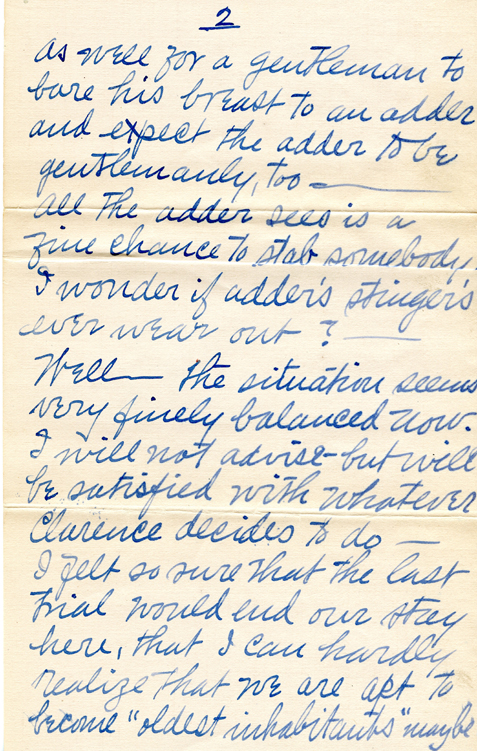 2
as well for a gentleman to
bare his breast to an adder
and expect the adder to be
gentlemanly, too —
All the adder sees is a
fine chance to stab somebody
I wonder if adder's stinger's
ever wear out? —
Well — the situation seems
very finely balanced now.
I will not advise - but will
be satisfied with whatever
Clarence decides to do —
I felt so sure that the last
trial would end our stay
here, that I can hardly
realize that we are apt to
become "oldest inhabitants" maybe